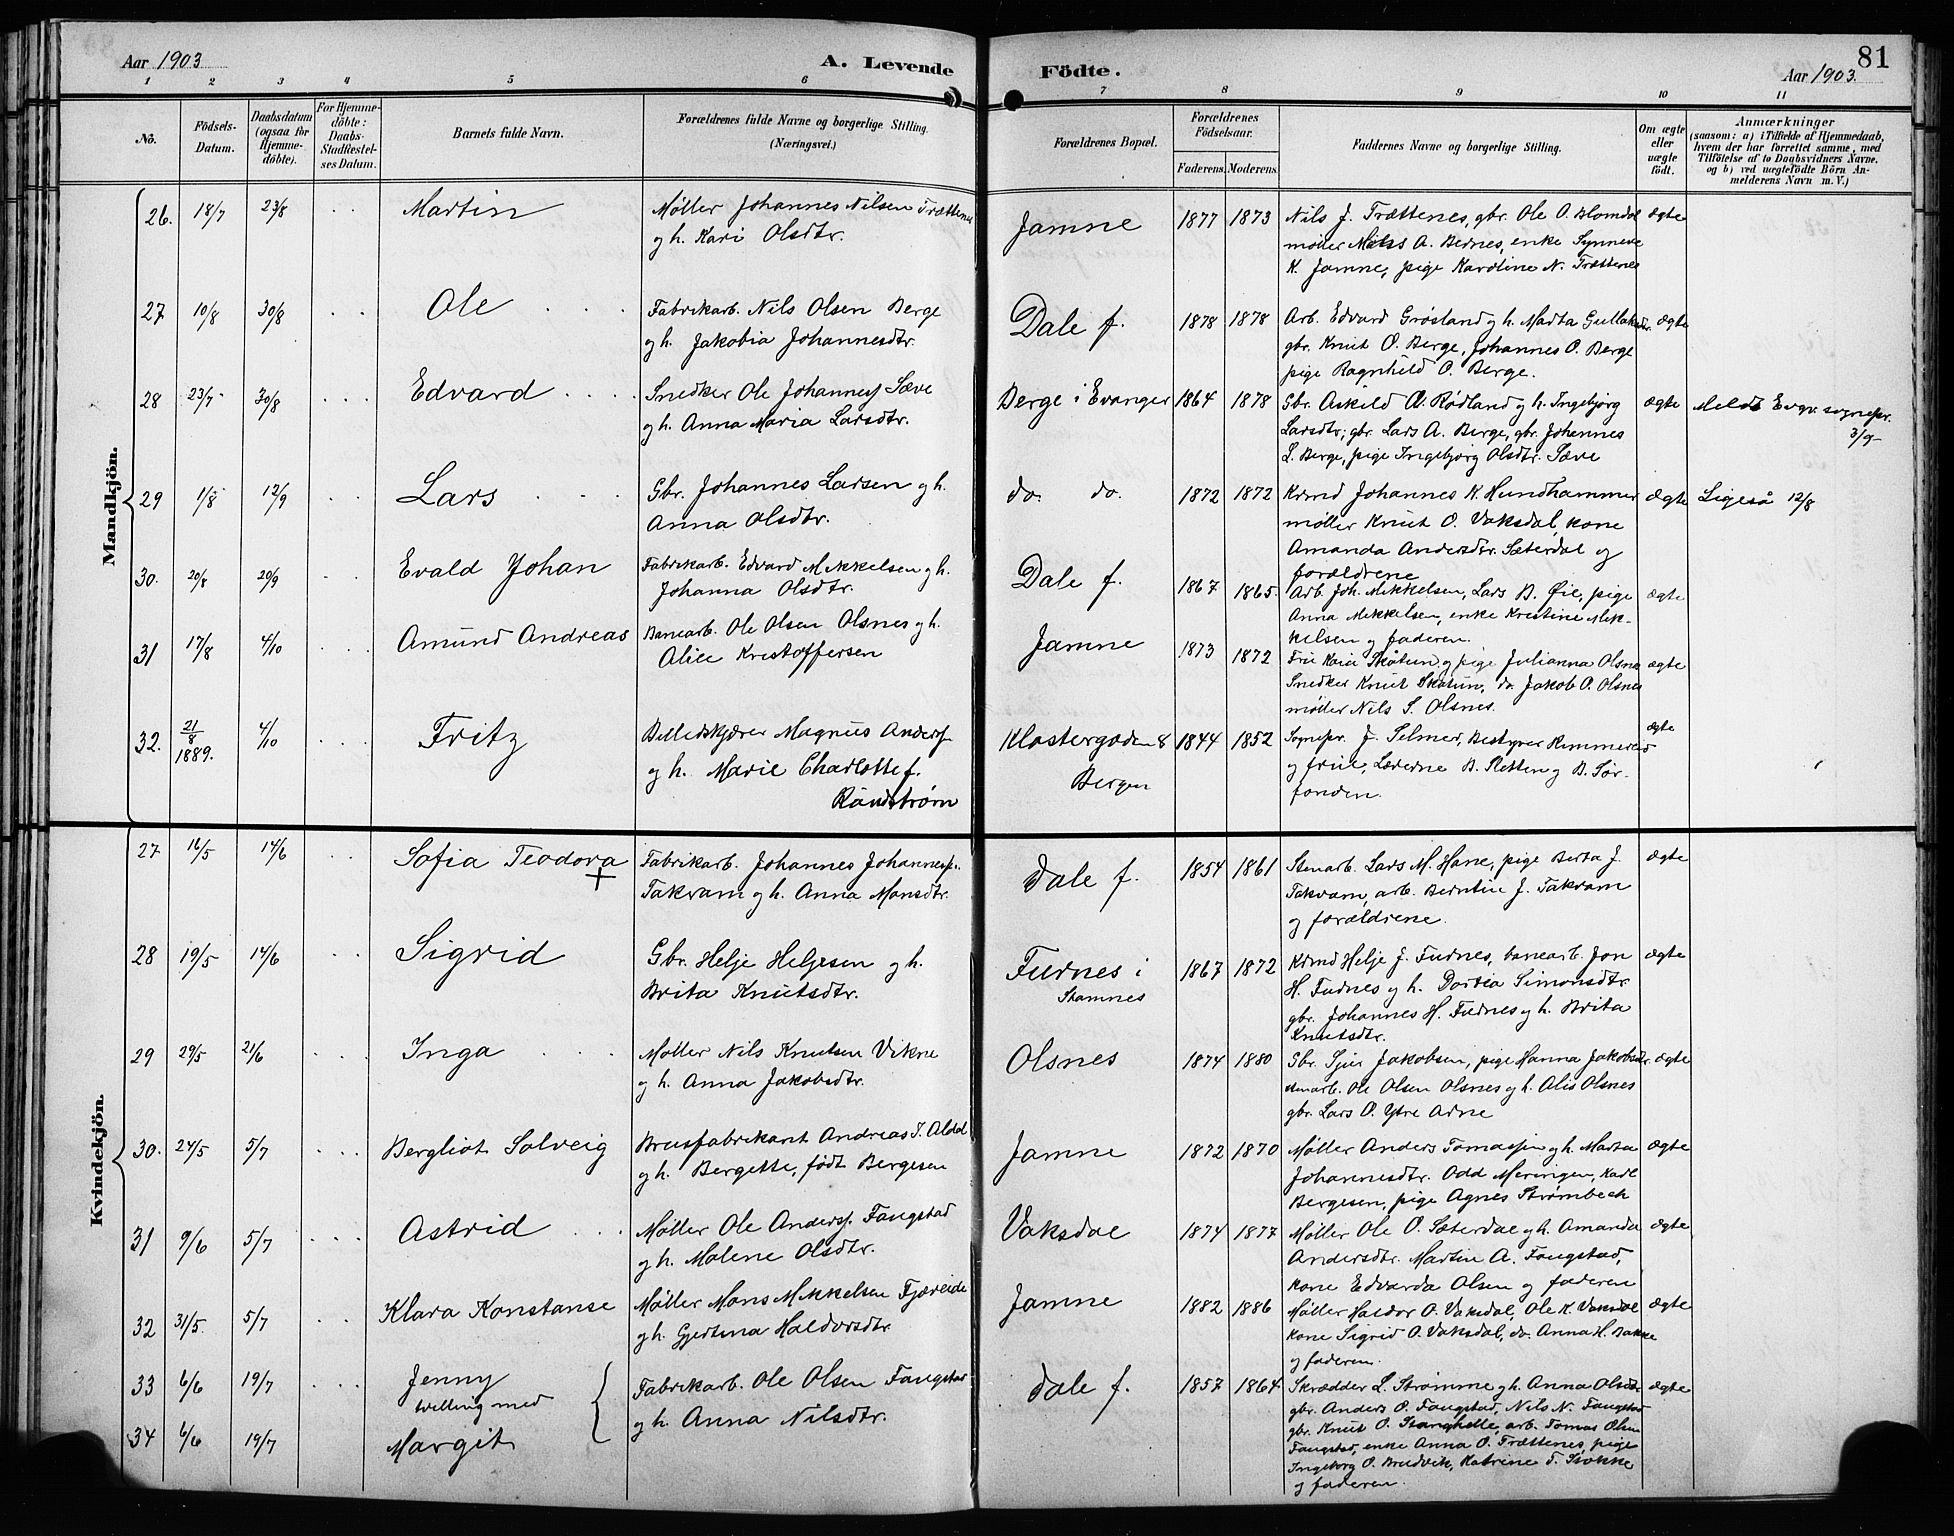 Aar 1903
A. Levende
Födte.
81
Aar 1903.
1 2 3 4 5 6 7 8 9 10 11
No.
Födsels-
Datum.
Daabsdatum
(ogsaa for
Hjemme-
döbte).
For Hjemme-
döbte:
Daabs-
Stadfestel-
ses Datum.
Barnets fulde Navn.
Forældrenes fulde Navne og borgerlige Stilling.
(Næringsvei.)
Forældrenes Bopæl.
Forældrenes
Födselsaar.
Faderens. Moderens.
Faddernes Navne og borgerlige Stilling.
Om ægte
eller
uægte
födt.
Anmærkninger
(saasom: a) i Tilfælde af Hjemmedaab,
hvem der har forrettet samme, med
Tilföielse af to Daabsvidners Navne.
og b) ved uægtefödte Börn An-
melderens Navn m. V.)
Mandkjön.
26. 18/7 23/8 Martin
Møller Johannes Nilsen Trættenes
og h. Kari Olsdtr.
Jamne 1877 1873
Nils J. Trættenes, gbr. Ole O. Blomdal
møller Nils A. Bernes, enke Synneve
K. Jamne, pige Karoline N. Trættenes
ægte
27 10/8 30/8 Ole
Fabrikarb. Nils Olsen Berge
og h. Jakobia Johannesdtr.
Dale f. 1878 1878
Arb. Edvard Grøsland og h. Marta Gullaksdr.
gbr. Knut O. Berge, Johannes O. Berge
pige Ragnhild O. Berge.
ægte
28 23/7 30/8 Edvard
Snedker Ole Johannes Sæve
og h. Anna Maria Larsdtr.
Berge i Evanger 1864 1878
Gbr. Askild A. Rødland og h. Ingebjørg
Larsdtr; gbr. Lars A. Berge, gbr. Johannes
L. Berge, pige Ingebjørg Olsdtr. Sæve
ægte
Meldt Evgr. sognepr.
3/9
29 1/8 12/9 Lars
Gbr. Johannes Larsen og h.
Anna Olsdtr.
do. do. 1872 1872
Krmd Johannes K. Hundhammer
møller Knut O. Vaksdal, kone
Amanda Andersdtr. Sæterdal og
forældrene
ægte
Ligeså 12/8
30. 20/8 20/9 Evald Johan
Fabrikarb. Edvard Mikkelsen og h.
Johanna Olsdtr.
Dale f. 1867 1865.
Arb. Joh. Mikkelsen, Lars B. Øie, pige
Anna Mikkelsen, enke Kristine Mik-
kelsen og faderen.
ægte
31 17/8 4/10 Amund Andreas
Banearb. Ole Olsen Olsnes og h.
Alice Kristoffersen
Jamne 1873 1872
Fru Kari Skåtun og pige Julianna Olsnes
Snedker Knut Skåtun, do. Jakob O. Olsnes
møller Nils S. Olsnes.
ægte
32. 21/8
1889. 4/10 Fritz
Billedskjærer Magnus Anders.
og h. Marie Charlotte f.
Randstrøm
Klostergaden 8
Bergen
1844 1852
Sognepr. J. Selmer, Bestyrer Rimmereid
og frue, Lærerne B. Sletten og B. Sør-
fonden.
ægte
Kvindekjön.
27 16/5 14/6 Sofia Teodora
+
Fabrikarb. Johannes Johannes.
Takvam og h. Anna Monsdtr.
Dale f. 1854 1861
Stenarb. Lars M. Hane, pige Berta J.
Takvam, arb. Berntin J. Takvam
og forældrene.
ægte
28 19/5 14/6 Sigrid
Gbr. Helje Heljesen og h.
Brita Knutsdtr.
Furnes i
Stamnes
1867 1872
Krmd Helje J. Furnes, banearb. Jon
H. Furnes og h. Dortea Simonsdtr
gbr. Johannes H. Furnes og h. Brita
Knutsdtr.
ægte
29 29/5 21/6 Inga
Møller Nils Knutsen Vikne
og h. Anna Jakobsdtr.
Olsnes 1874 1880
Gbr. Sjur Jakobsen, pige Hanna Jakobsdtr.
stenarb. Ole Olsen Olsnes og h. Alis Olsnes
gbr. Lars O. Ytre Arne
ægte
30. 24/5 5/7 Bergliot Solveig
Brusfabrikant Andreas T. Aldal
og h. Bergette, født Bergesen
Jamne 1872 1870
Møller Anders Tomassen og h. Marta
Johannesdtr. Odd Meringen, Karl
Bergesen, pige Agnes Strømbeck
ægte
31 9/6 5/7 Astrid
Møller Ole Anders. Fangstad
og h. Malene Olsdtr.
Vaksdal 1874 1877
Møller Ole O. Sæterdal og h. Amanda
Andersdtr. Martin A. Fangstad,
kone Edvarda Olsen og faderen
ægte
32 31/5 5/7 Klara Konstanse
Møller Mons Mikkelsen Fjæreide
og h. Gjertina Haldorsdtr
Jamne 1882 1886
Møller Haldor O. Vaksdal, Ole K. Vaksdal
kone Sigrid O. Vaksdal, do. Anna H. Bakke
og faderen.
ægte
33 6/6 19/7 Jenny
tvilling med
34 6/6 19/7 Margit
Fabrikarb. Ole Olsen Fangstad
og h. Anna Nilsdtr.
Dale f. 1857 1864
Skrædder L. Strømme og h. Anna Olsdtr
gbr. Anders O. Fangstad, Nils N. Fangstad
gbr. Knut O. Stanghelle, arb. Tomas Olsen
Fangstad, enke Anna O. Trættenes, pige
Ingeborg O. Brudvik, Katrine T. Stokke
og faderen.
ægte